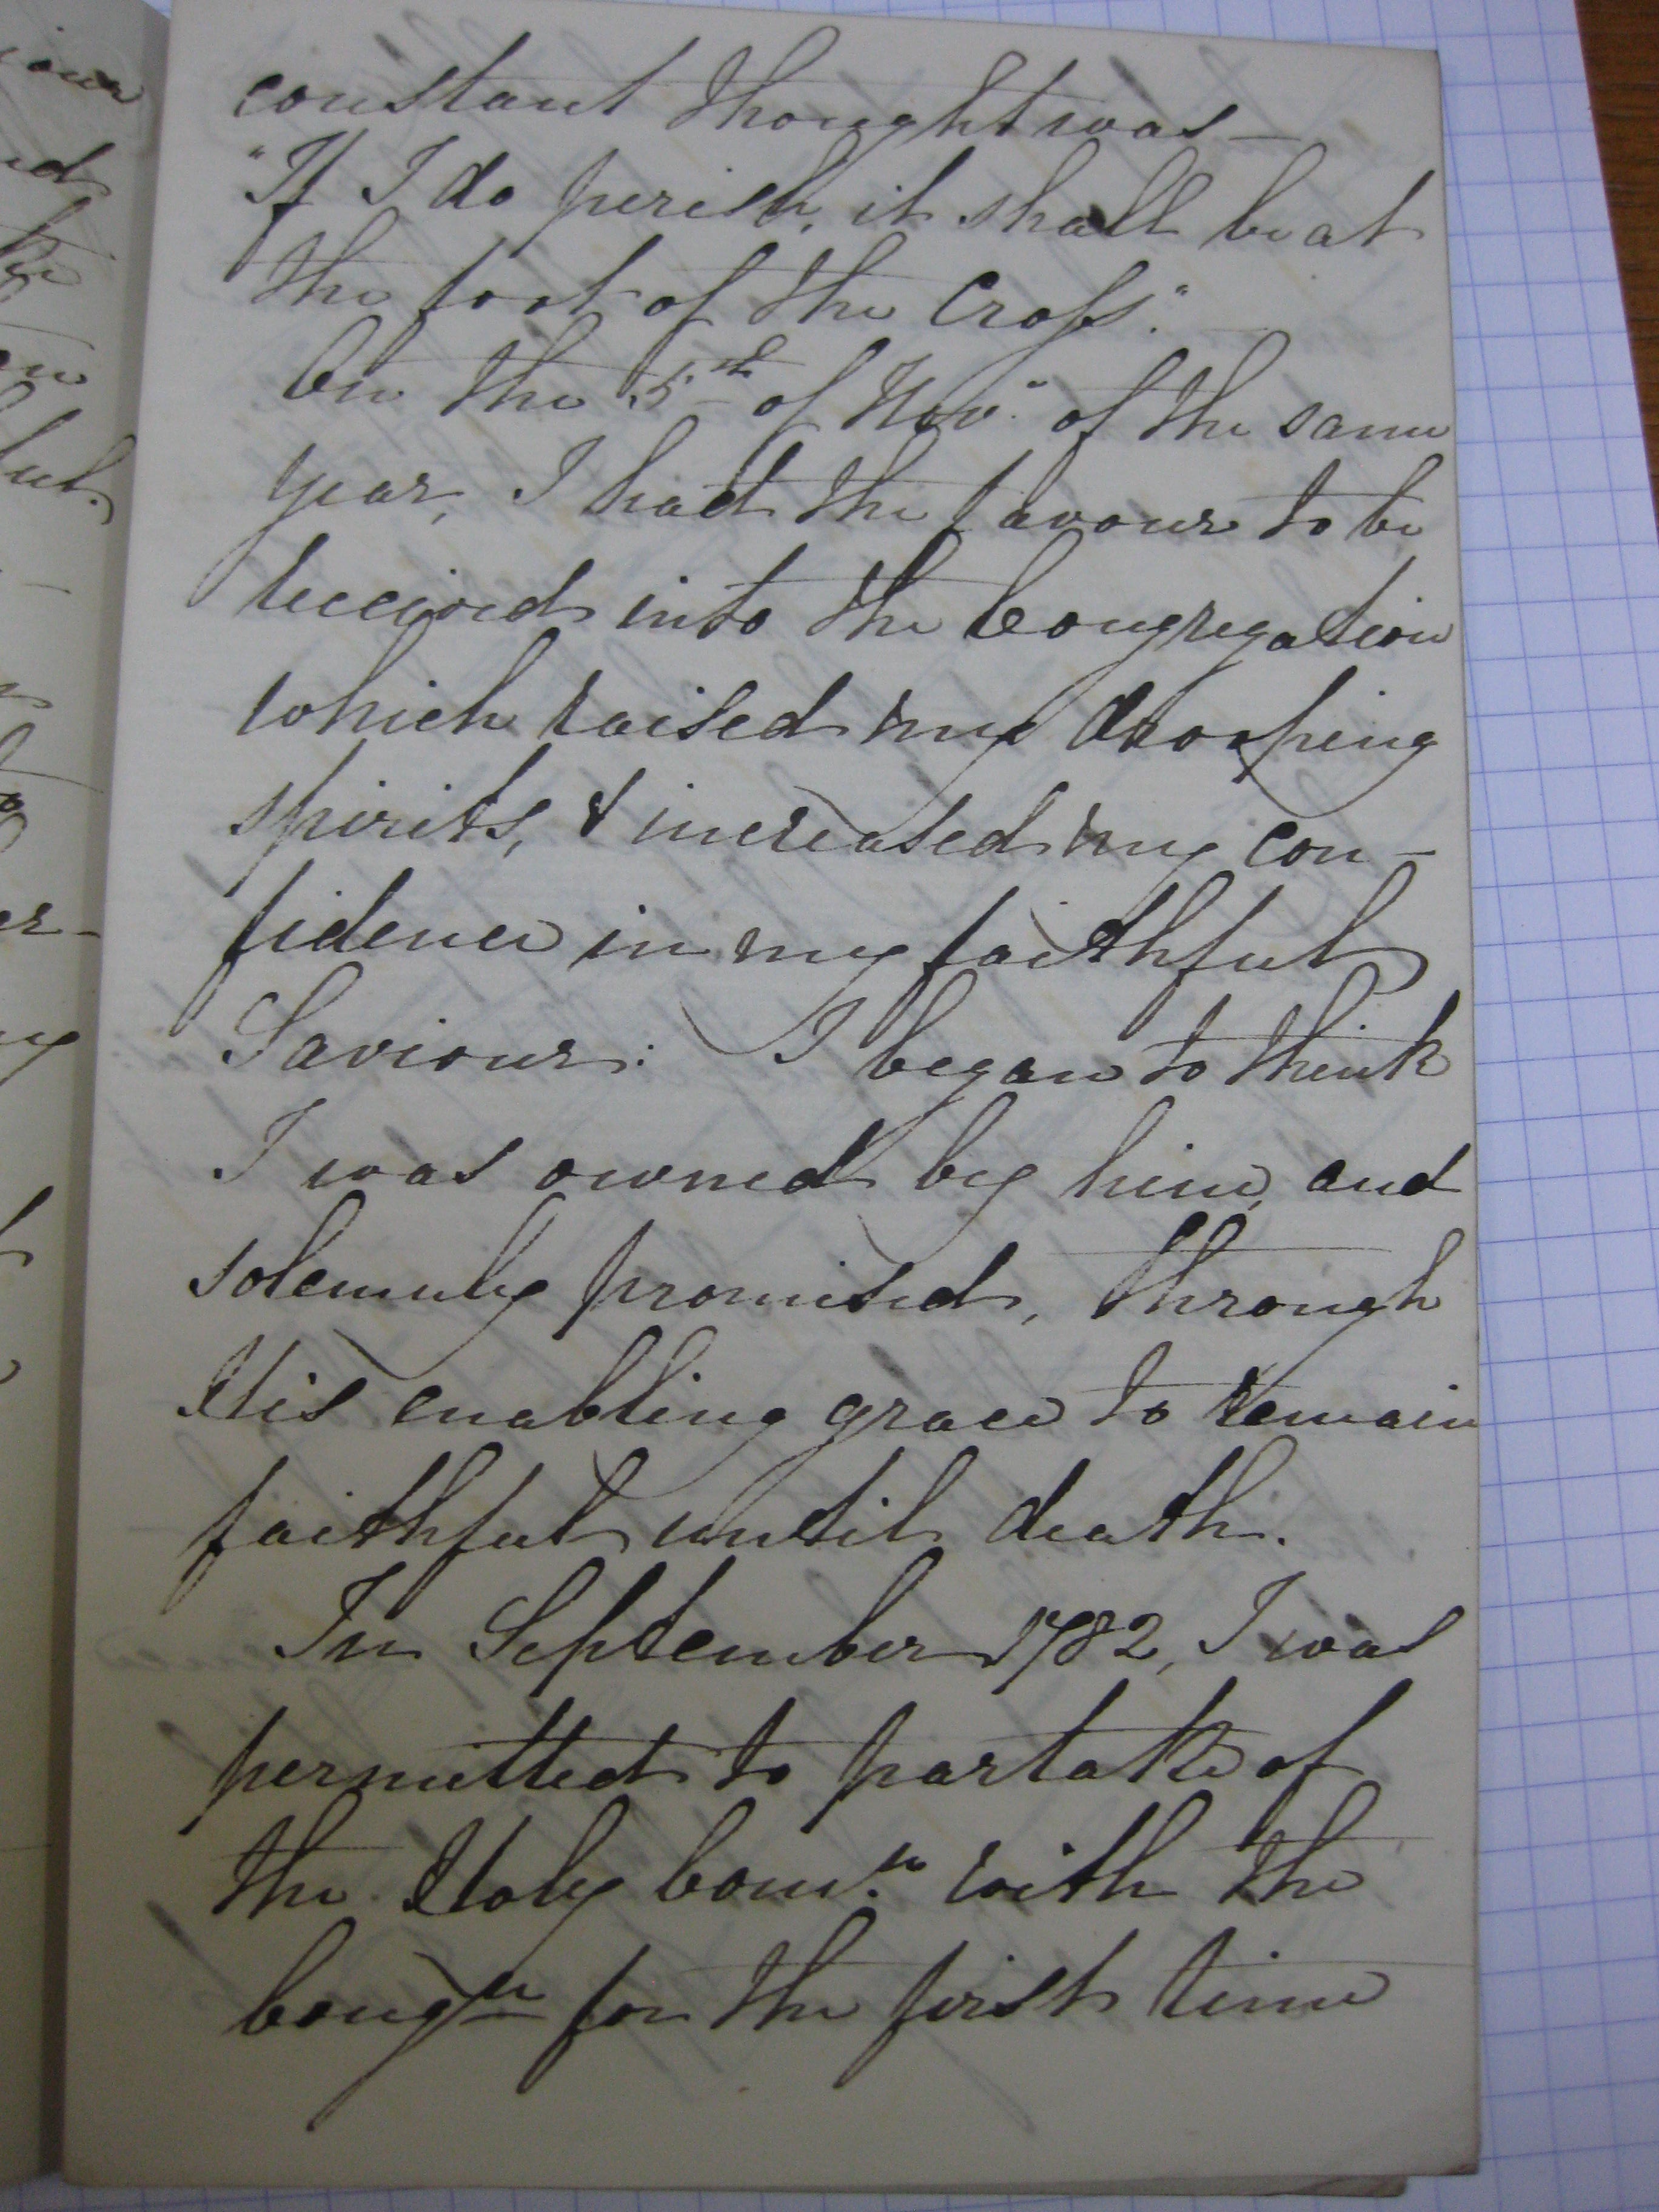 constant thought was —
"If I do perish, it shall be at
the foot of the Cross".
On the 5th of Nov.r of the same
year, I had the favour to be
received into the Congregation
which raised my drooping
spirits, & increased my con-
fidence in my faithful
Saviour: I began to think
I was owned by him, and
solemnly promised, through
His enabling grace to remain
faithful until death.
In September 1782, I was
permitted to partake of
the Holy Com.n with the
Cong.n for the first time